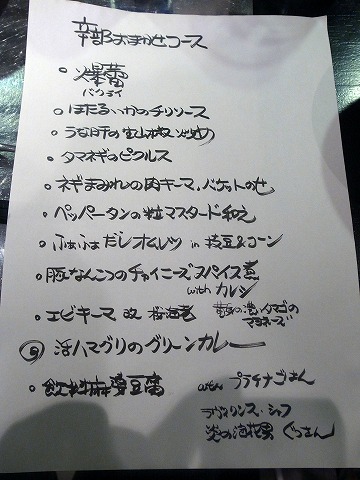 辛部おまかせコース
• 爆蕾
バクライ
• ほたるいかのチリソース
• うな肝の実山椒炒め
• タマネギのピクルス
• ネギまみれの肉キーマ、バケットのせ
• ペッパータンの粒マスタード和え
• ふぁふぁだしオムレツ in 枝豆&コーン
• 豚なんこつのチャイニーズスパイス煮
with カレン
• エビキーマ 改 桜海老
タマゴの
マヨネーズ
◎ 活ハマグリのグリーンカレー
• 飲む麻婆豆腐
プラチナごはん
シェフ
ぐっさん